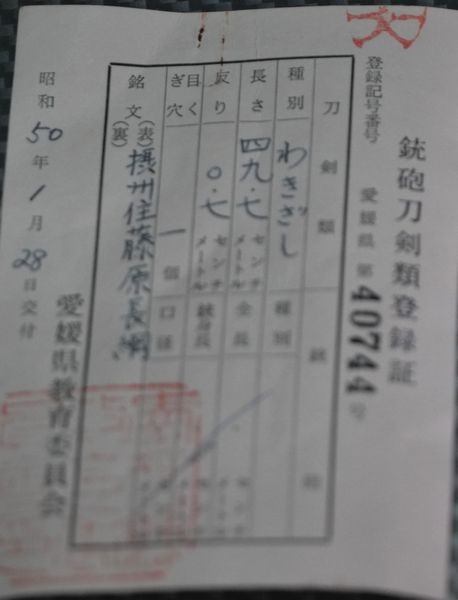 銃砲刀剣類登録証
登録記号番号 愛媛県 第40744号
刀剣類 銃砲
種別 わきざし 種別
長さ 四九・七 センチメートル 全長
反り 〇・七 センチメートル 銃身長
目くぎ穴 一個 口径
銘文 (表) 摂州住藤原長綱
(裏)
昭和50年1月28日交付
愛媛県教育委員会